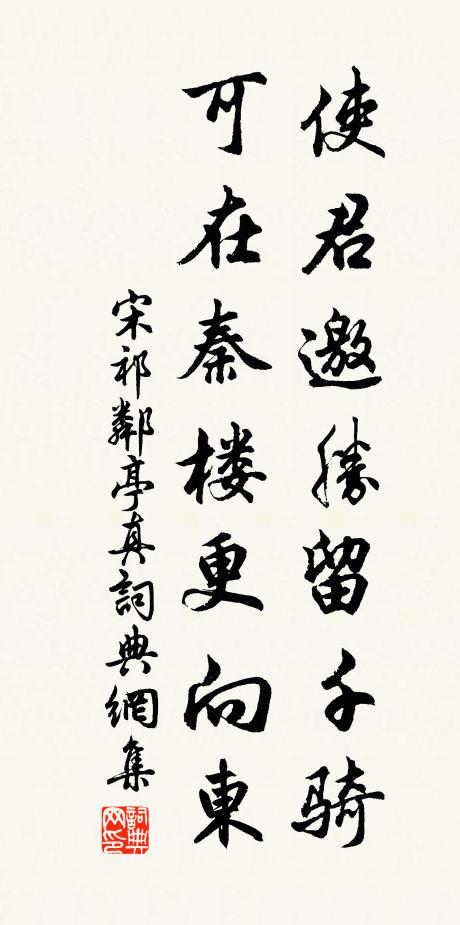 使君邀勝留千骑
可在秦楼更向東
宋祁鄰亭真詞典網集
詞典网印